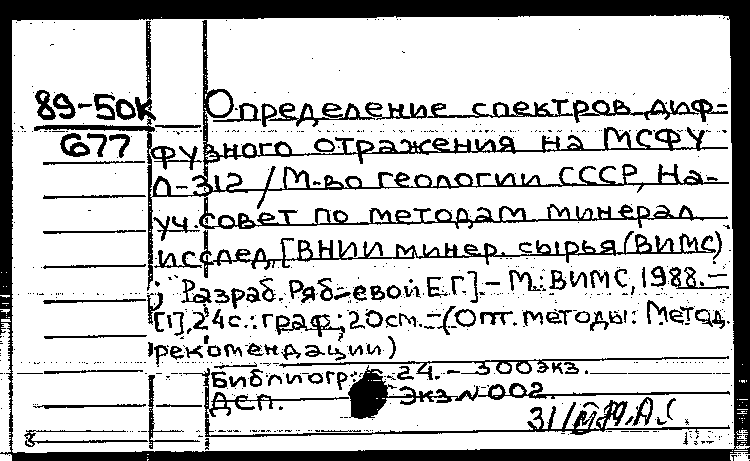 89-50К
677
Определение спектров диф=
фузного отражения на МСФУ
Л-312 / М-во геологии СССР, На-
уч. совет по методам минерал.
исслед, [ВНИИ минер. сырья (ВИМС)
; Разраб. Ряб-евой Е.Г.]. - М.: ВИМС, 1988. -
[1], 24 с.: граф.; 20 см. - (Опт. методы: Метод.
рекомендации)
Библиогр.: с. 24. - 300 экз.
ДСП. Экз. № 002.
8